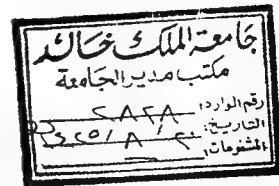 جامعة الملك خالد
مكتب مدير الجامعة
رقم الوارد: ٢٨٢٨
التاريخ:
المشفوعات: